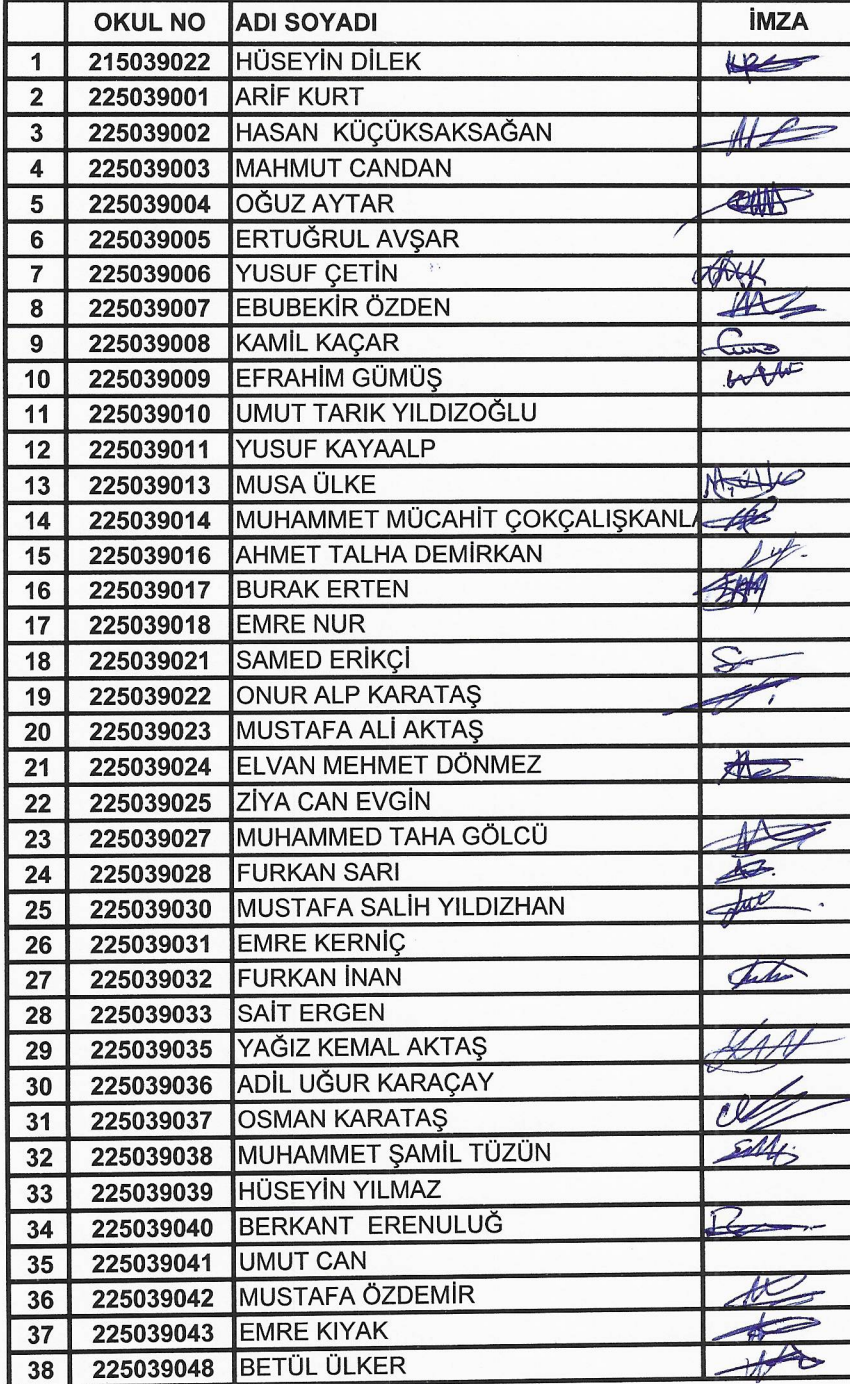 OKUL NO ADI SOYADI İMZA
1 215039022 HÜSEYİN DİLEK
2 225039001 ARİF KURT
3 225039002 HASAN KÜÇÜKSAKSAĞAN
4 225039003 MAHMUT CANDAN
5 225039004 OĞUZ AYTAR
6 225039005 ERTUĞRUL AVŞAR
7 225039006 YUSUF ÇETİN
8 225039007 EBUBEKİR ÖZDEN
9 225039008 KAMİL KAÇAR
10 225039009 EFRAHİM GÜMÜŞ
11 225039010 UMUT TARIK YILDIZOĞLU
12 225039011 YUSUF KAYAALP
13 225039013 MUSA ÜLKE
14 225039014 MUHAMMET MÜCAHİT ÇOKÇALIŞKANLA
15 225039016 AHMET TALHA DEMİRKAN
16 225039017 BURAK ERTEN
17 225039018 EMRE NUR
18 225039021 SAMED ERİKÇİ
19 225039022 ONUR ALP KARATAŞ
20 225039023 MUSTAFA ALİ AKTAŞ
21 225039024 ELVAN MEHMET DÖNMEZ
22 225039025 ZİYA CAN EVGİN
23 225039027 MUHAMMED TAHA GÖLCÜ
24 225039028 FURKAN SARI
25 225039030 MUSTAFA SALİH YILDIZHAN
26 225039031 EMRE KERNİÇ
27 225039032 FURKAN İNAN
28 225039033 SAİT ERGEN
29 225039035 YAĞIZ KEMAL AKTAŞ
30 225039036 ADİL UĞUR KARAÇAY
31 225039037 OSMAN KARATAŞ
32 225039038 MUHAMMET ŞAMİL TÜZÜN
33 225039039 HÜSEYİN YILMAZ
34 225039040 BERKANT ERENULUĞ
35 225039041 UMUT CAN
36 225039042 MUSTAFA ÖZDEMİR
37 225039043 EMRE KIYAK
38 225039048 BETÜL ÜLKER